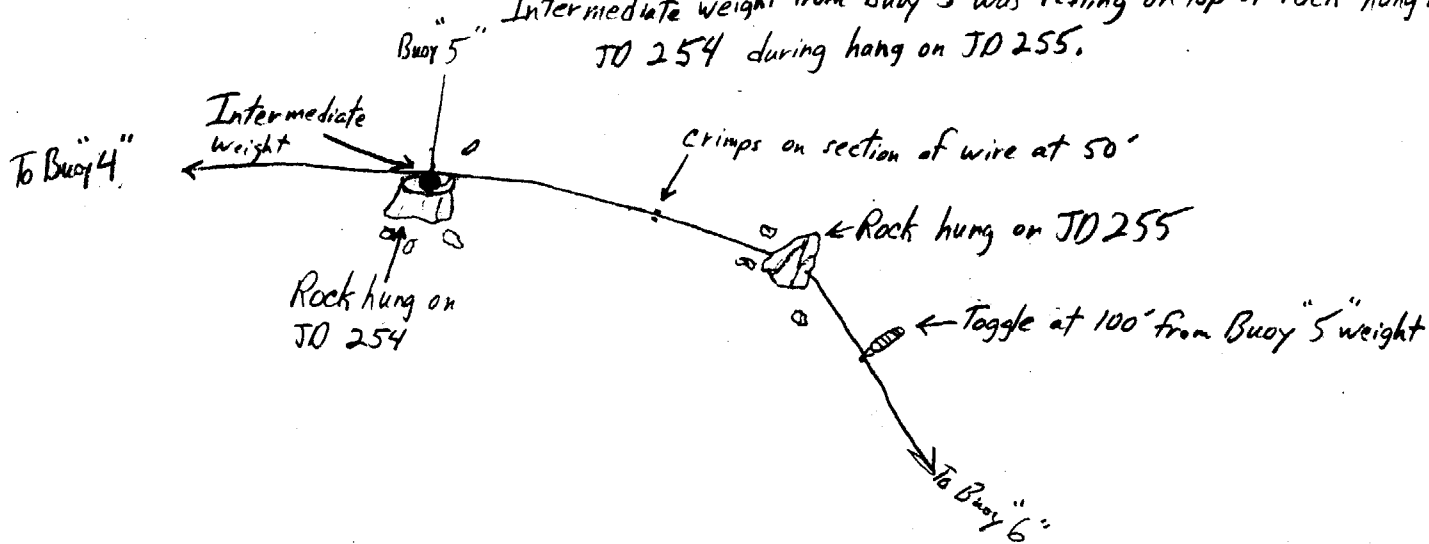 Intermediate weight from Buoy "5" was resting on top of rock hung
JD 254 during hang on JD 255.
Buoy "5"
Intermediate
weight
To Buoy "4"
crimps on section of wire at 50'
←Rock hung on JD 255
Rock hung on
JD 254
←Toggle at 100' from Buoy "5" weight
To Buoy "6"